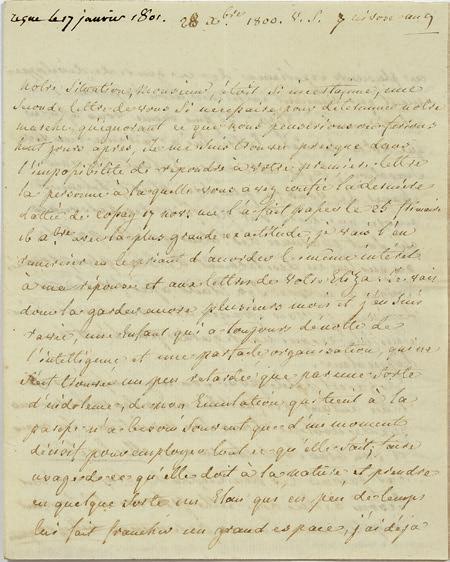 reçue le 17 janvier 1801.
28 Xbre 1800. V. S. 7 nivose an 9
notre Situation, monsieur, étoit Si incertaine, une
Seconde lettre de vous Si nécessaire pour déterminer notre
marche, qu'ignorant ce que nous penserions ou ferions
huit jours après, Je me suis trouvée presque dans
l'impossibilité de répondre à votre premiere lettre
la personne à laquelle vous avez confié la derniere
dattée de 17 nov. me l'a fait passer le 25 frimaire
16 Xbre avec la plus grande exactitude, je vais l'en
remercier en le priant d'accorder le même intérêt
à ma réponse et aux lettres de votre Eliza. Je vais
donc la garder encore plusieurs mois et j'en suis
ravie, une Enfant qui a toujours dénotté de
l'intelligence et une parfaite organisation, qui ne
s'est trouvée un peu retardée que par une Sorte
d'indolence, de non Emulation qui tient à la
n'a besoin Souvent que d'un moment
décisif pour employer tout ce qu'elle Sait, faire
usage de ce qu'elle doit à la nature et prendre
en quelque Sorte un Elan qui en peu de temps
lui fait franchir un grand espace, j'ai déjà